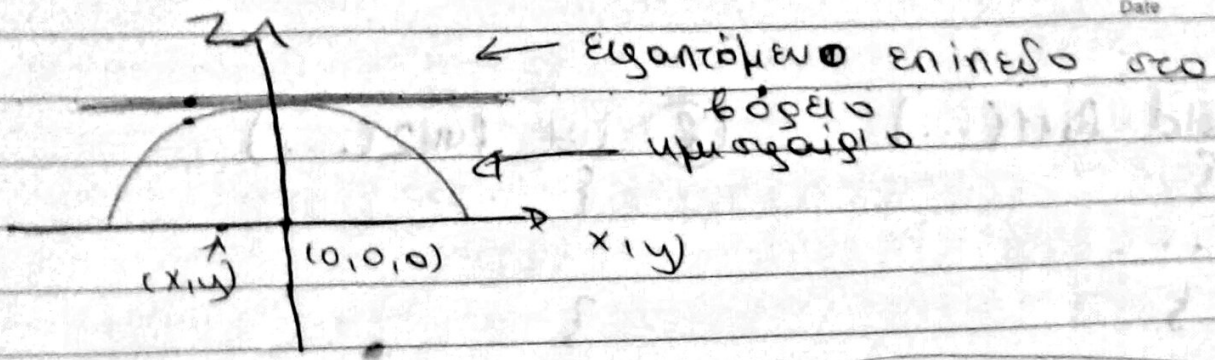 Date
Z
← εφαπτόμενο επίπεδο στο
βόρειο
← ημισφαίριο
(x,y)
(0,0,0)
x,y)